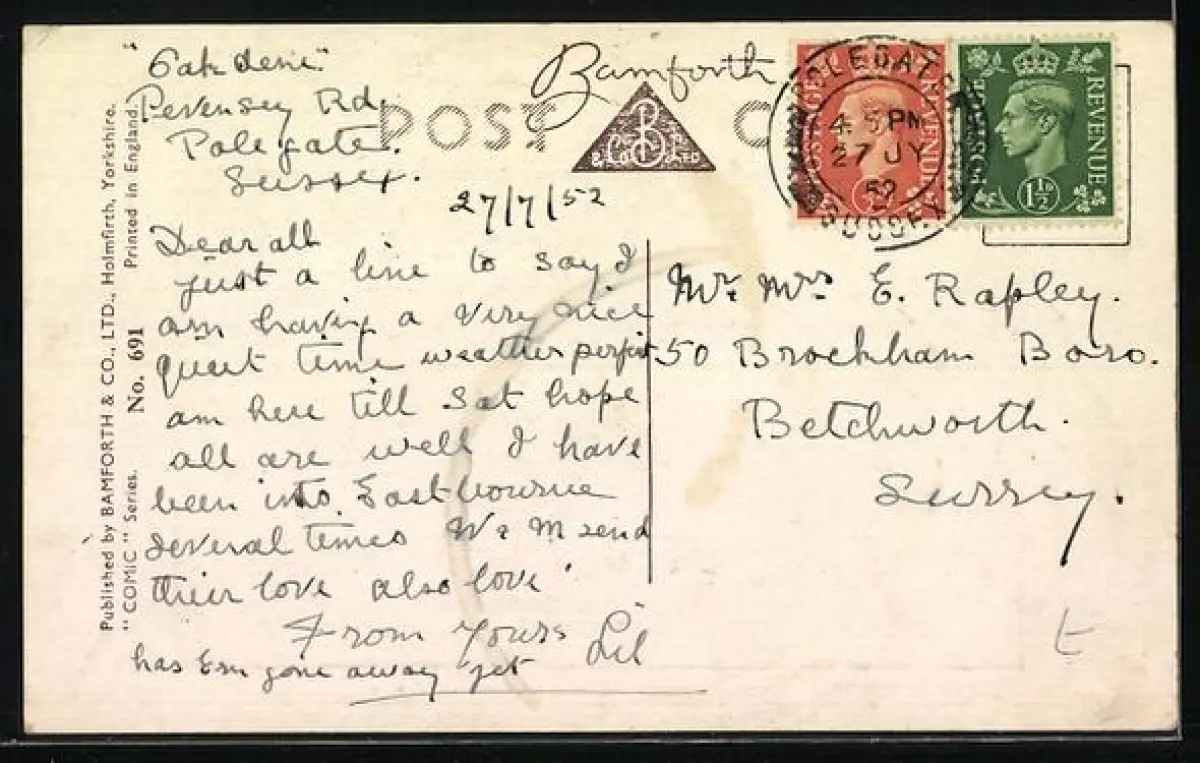 "Oakdene"
Pevensey Rd,
Polegate.
Sussex.
27/7/52
Dear all
just a line to say I
am having a very nice
quiet time weather perfect
am here till Sat hope
all are well I have
been into Eastbourne
several times W & M send
their love also love
From Yours Lil
has Em gone away yet
Bamforth
POST C
B
& Co LTD
POLEGATE
4 5 PM
27 JY
52
SUSSEX
POSTAGE REVENUE
POSTAGE REVENUE
1½D
Mr. Mrs E. Rapley.
50 Brockham Boro.
Betchworth.
Surrey.
Published by BAMFORTH & CO., LTD., Holmfirth, Yorkshire.
"COMIC" Series. No. 691 Printed in England.